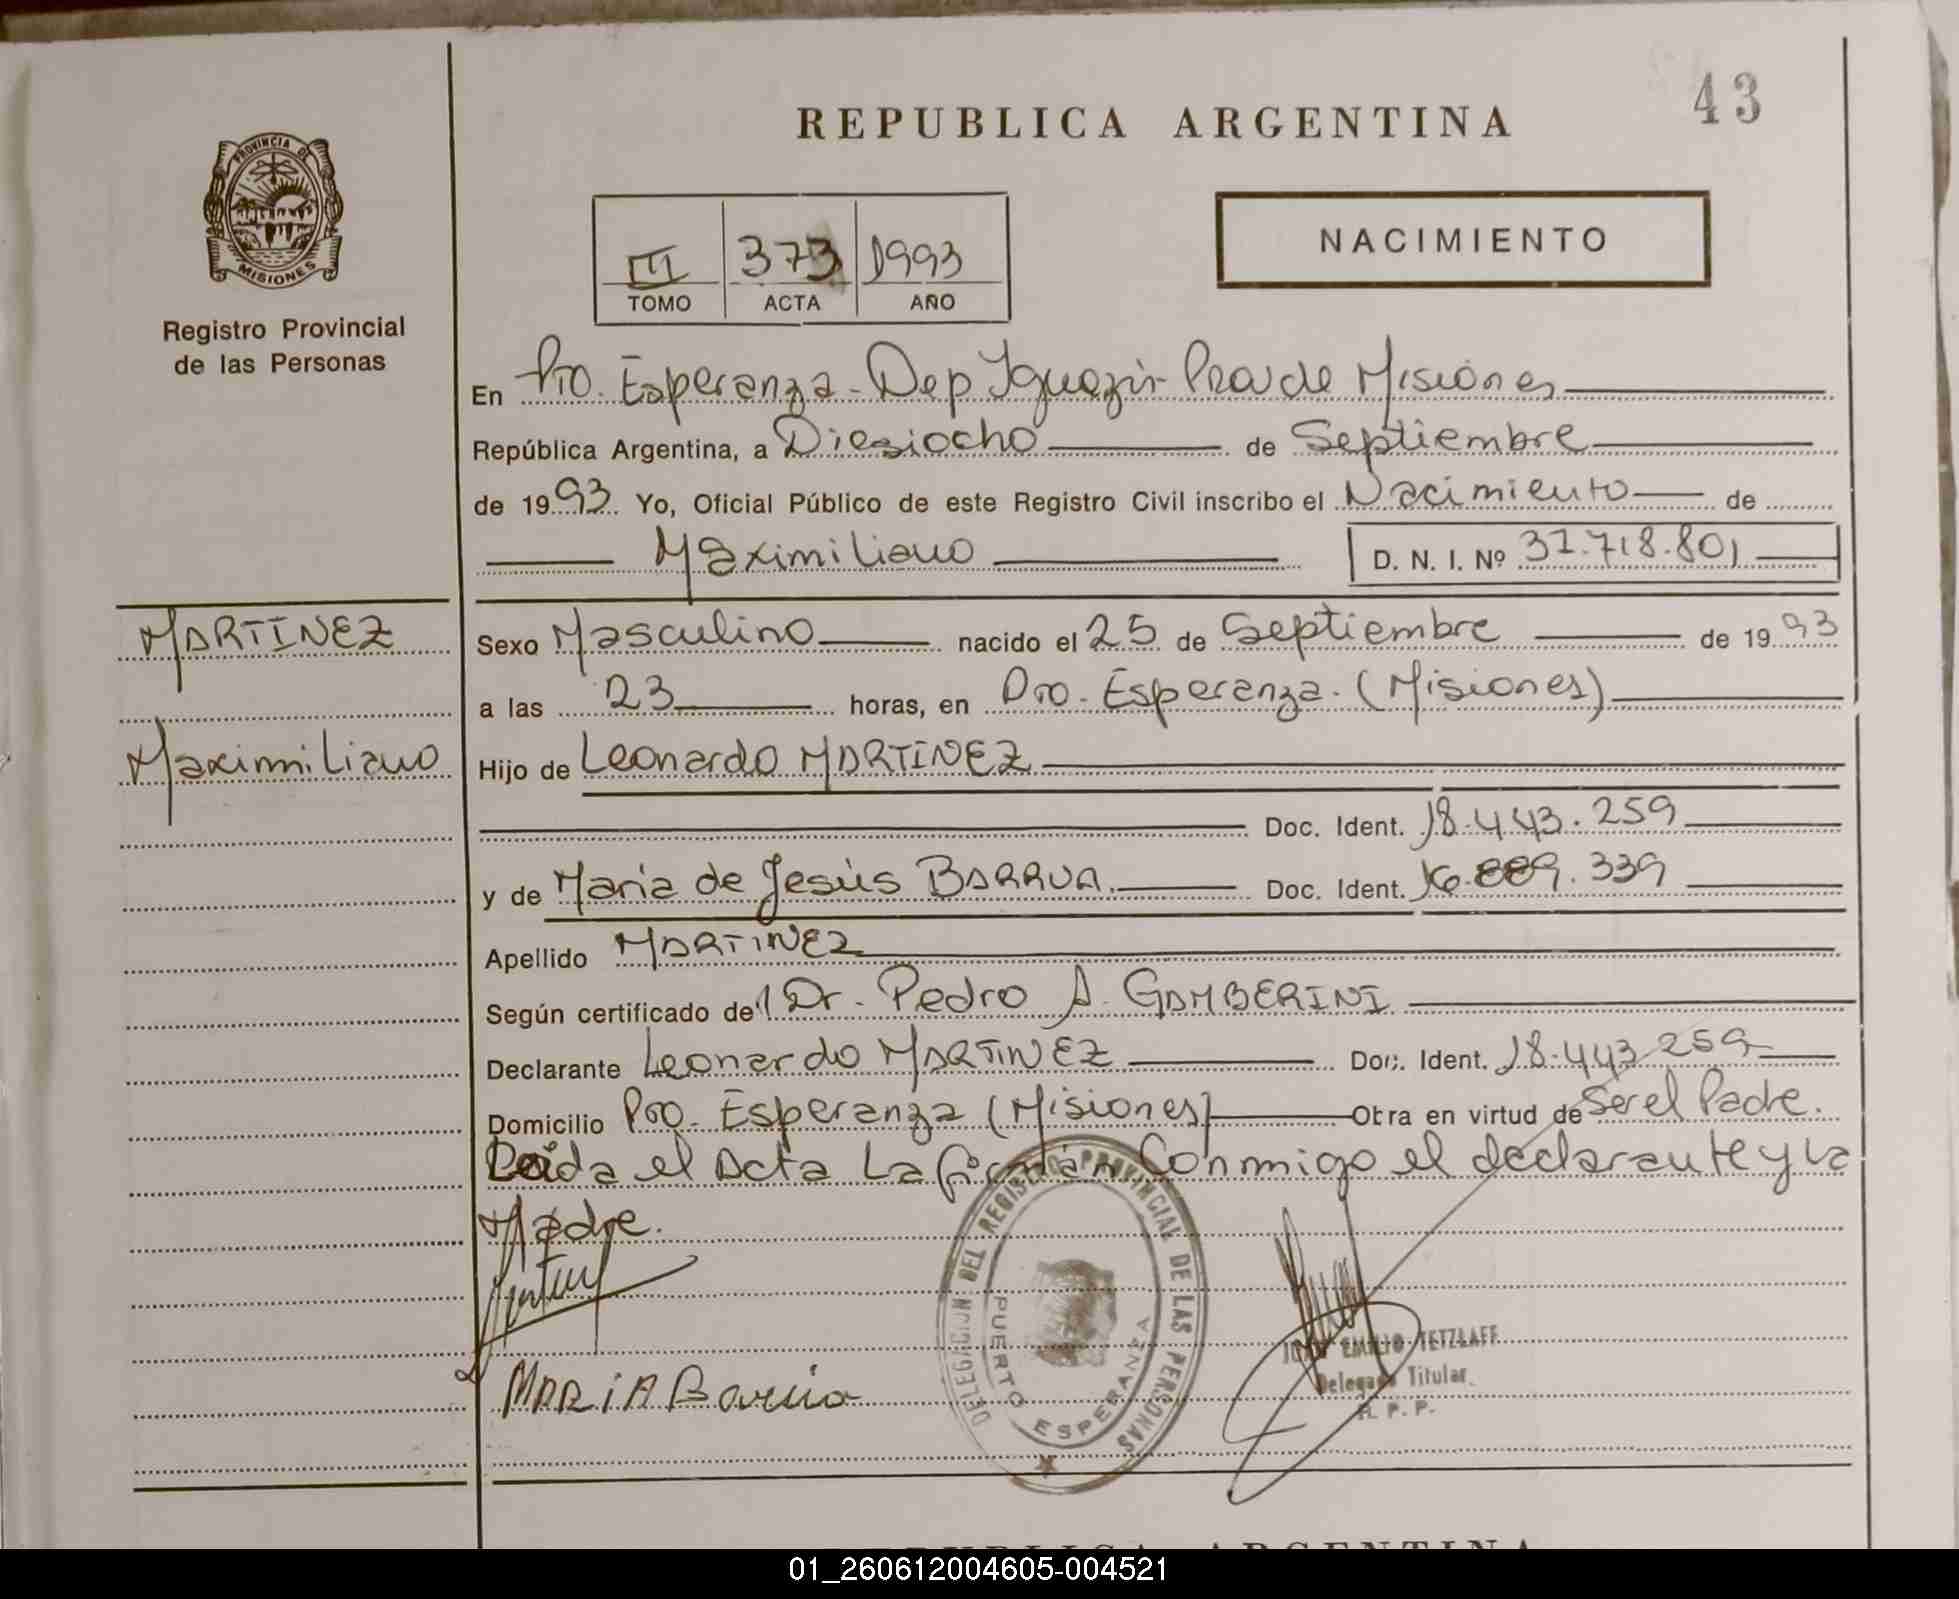 43
REPUBLICA ARGENTINA
PROVINCIA DE
MISIONES
Registro Provincial
de las Personas
NACIMIENTO
III 373 1993
TOMO ACTA AÑO
En Pto. Esperanza - Dep Iguazú - Pcia de Misiones
República Argentina, a Diesiocho de Septiembre
de 1993 Yo, Oficial Público de este Registro Civil inscribo el Nacimiento de
Maximiliano D. N. I. Nº 37.718.801
MARTINEZ
Maximiliano
Sexo Masculino nacido el 25 de Septiembre de 1993
a las 23 horas, en Pto. Esperanza. (Misiones)
Hijo de Leonardo MARTINEZ
Doc. Ident. 18.443.259
y de Maria de Jesús BARRUA. Doc. Ident. 16.889.339
Apellido MARTINEZ
Según certificado del Dr. Pedro A. GAMBERINI
Declarante Leonardo MARTINEZ Doc. Ident. 18.443.259
Domicilio Pto. Esperanza (Misiones) Obra en virtud de Ser el Padre.
Leida el Acta La firman Conmigo el declarante y la
Madre.
MARIA
DELEGACION DEL REGISTRO PROVINCIAL DE LAS PERSONAS
PUERTO ESPERANZA
EMILIO TETZLAFF
Delegado Titular
R. P. P.
REPUBLICA ARGENTINA
01_260612004605-004521